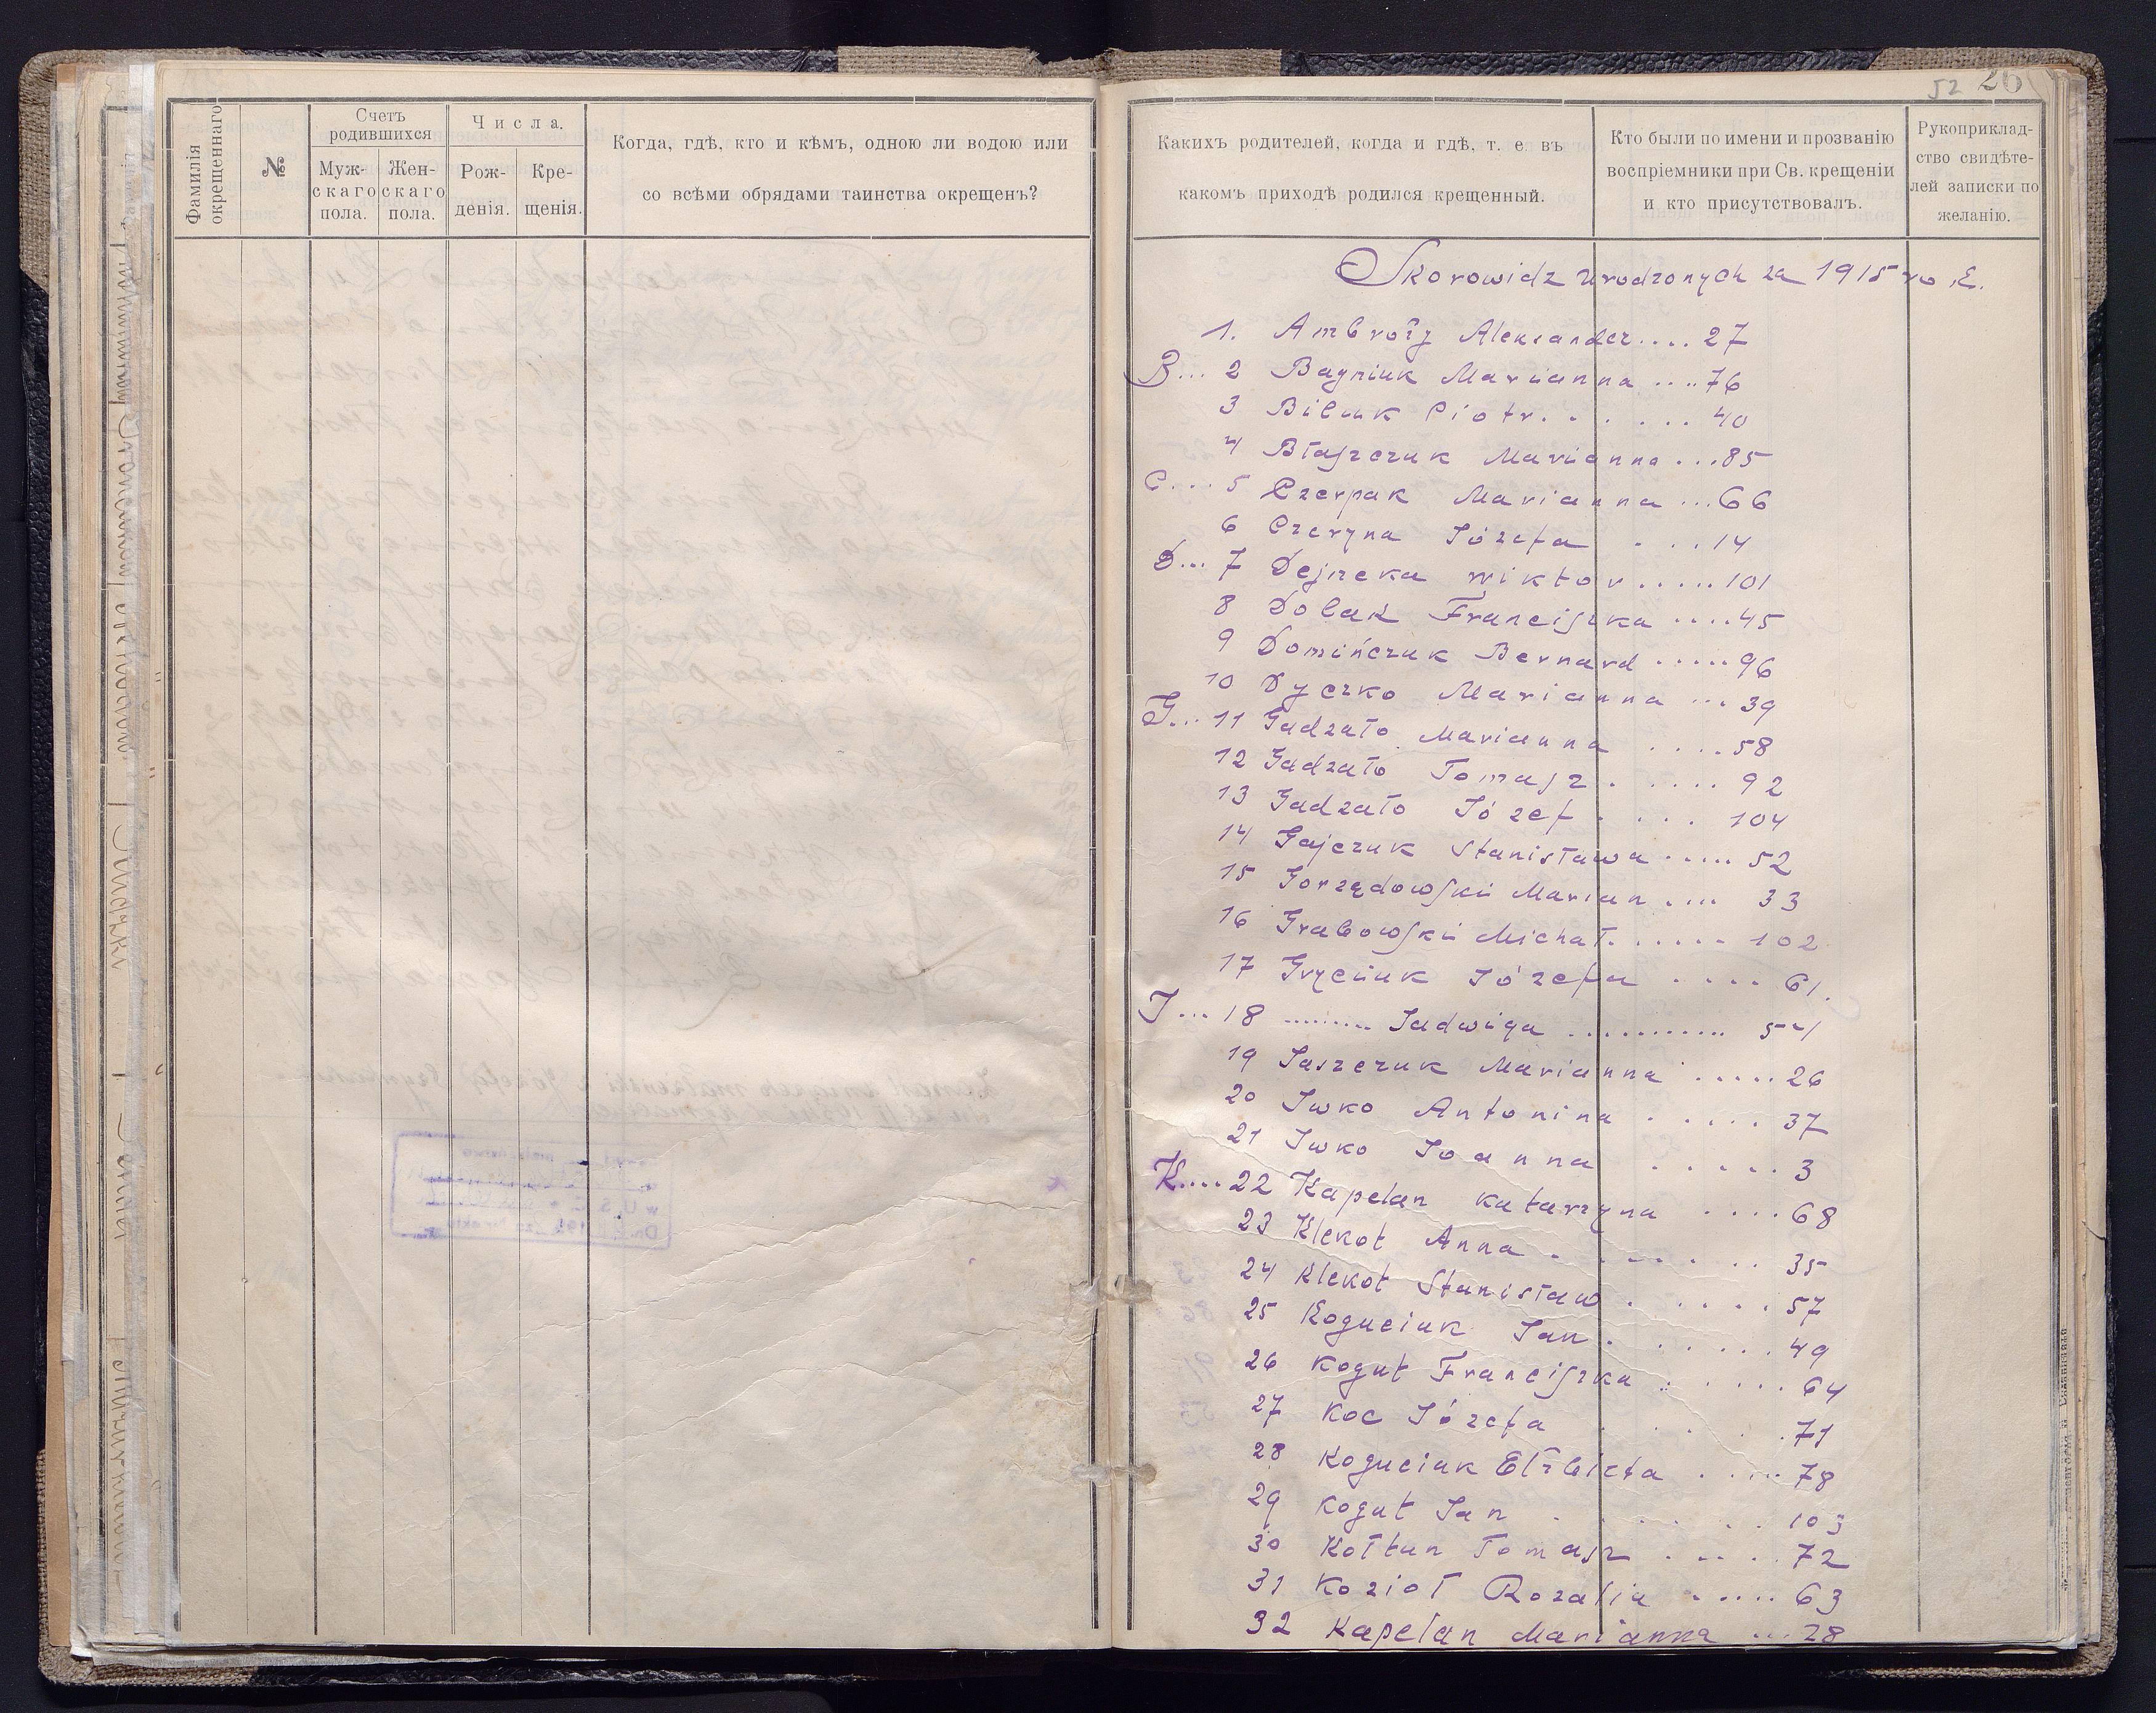 Фамилія окрещеннаго
№
Счетъ родившихся
Муж-скаго пола.
Жен-скаго пола.
Числа.
Рож-денія.
Кре-щенія.
Когда, гдѣ, кто и кѣмъ, одною ли водою или
со всѣми обрядами таинства окрещенъ?
52 26
Какихъ родителей, когда и гдѣ, т. е. въ
какомъ приходѣ родился крещенный.
Кто были по имени и прозванію
воспріемники при Св. крещеніи
и кто присутствовалъ.
Рукоприклад-
ство свидѣте-
лей записки по
желанію.
Skorowidz urodzonych za 1915
1. Ambroży Aleksander.... 27
B... 2 Bagniuk Marianna .... 76
3 Biluk Piotr. . . . . . 40
4 Błaszczuk Marianna ... 85
C.... 5 Czerpak Marianna ... 66
6 Czeryna Józefa . . . 14
D... 7 Dejneka Wiktor ..... 101
8 Dolak Franciszka .... 45
9 Domińczuk Bernard ..... 96
10 Dyczko Marianna ... 39
G... 11 Gadzało Marianna .... 58
12 Gadzało Tomasz . . . . . 92
13 Gadzało Józef . . . . 104
14 Gajczuk Stanisława ..... 52
15 Gorzędowski Marian .... 33
16 Grabowski Michał. ..... 102
17 Gryciuk Józefa .... 61.
J... 18 ......... Jadwiga ........... 54
19 Jaszczuk Marianna ..... 26
20 Iwko Antonina . . . . . 37
21 Iwko Joanna . . . . . 3
K.... 22 Kapelan Katarzyna .... 68
23 Klekot Anna . . . . . . 35
24 Klekot Stanisław . . . . . 57
25 Koguciuk Jan . . . . . . 49
26 Kogut Franciszka . . . . . 64
27 Koc Józefa . . . . 71
28 Koguciuk Elżbieta . . . . 78
29 Kogut Jan . . . . . . 103
30 Kołtun Tomasz . . . . 72
31 Kozioł Rozalia ..... 63
32 Kapelan Marianna ... 28